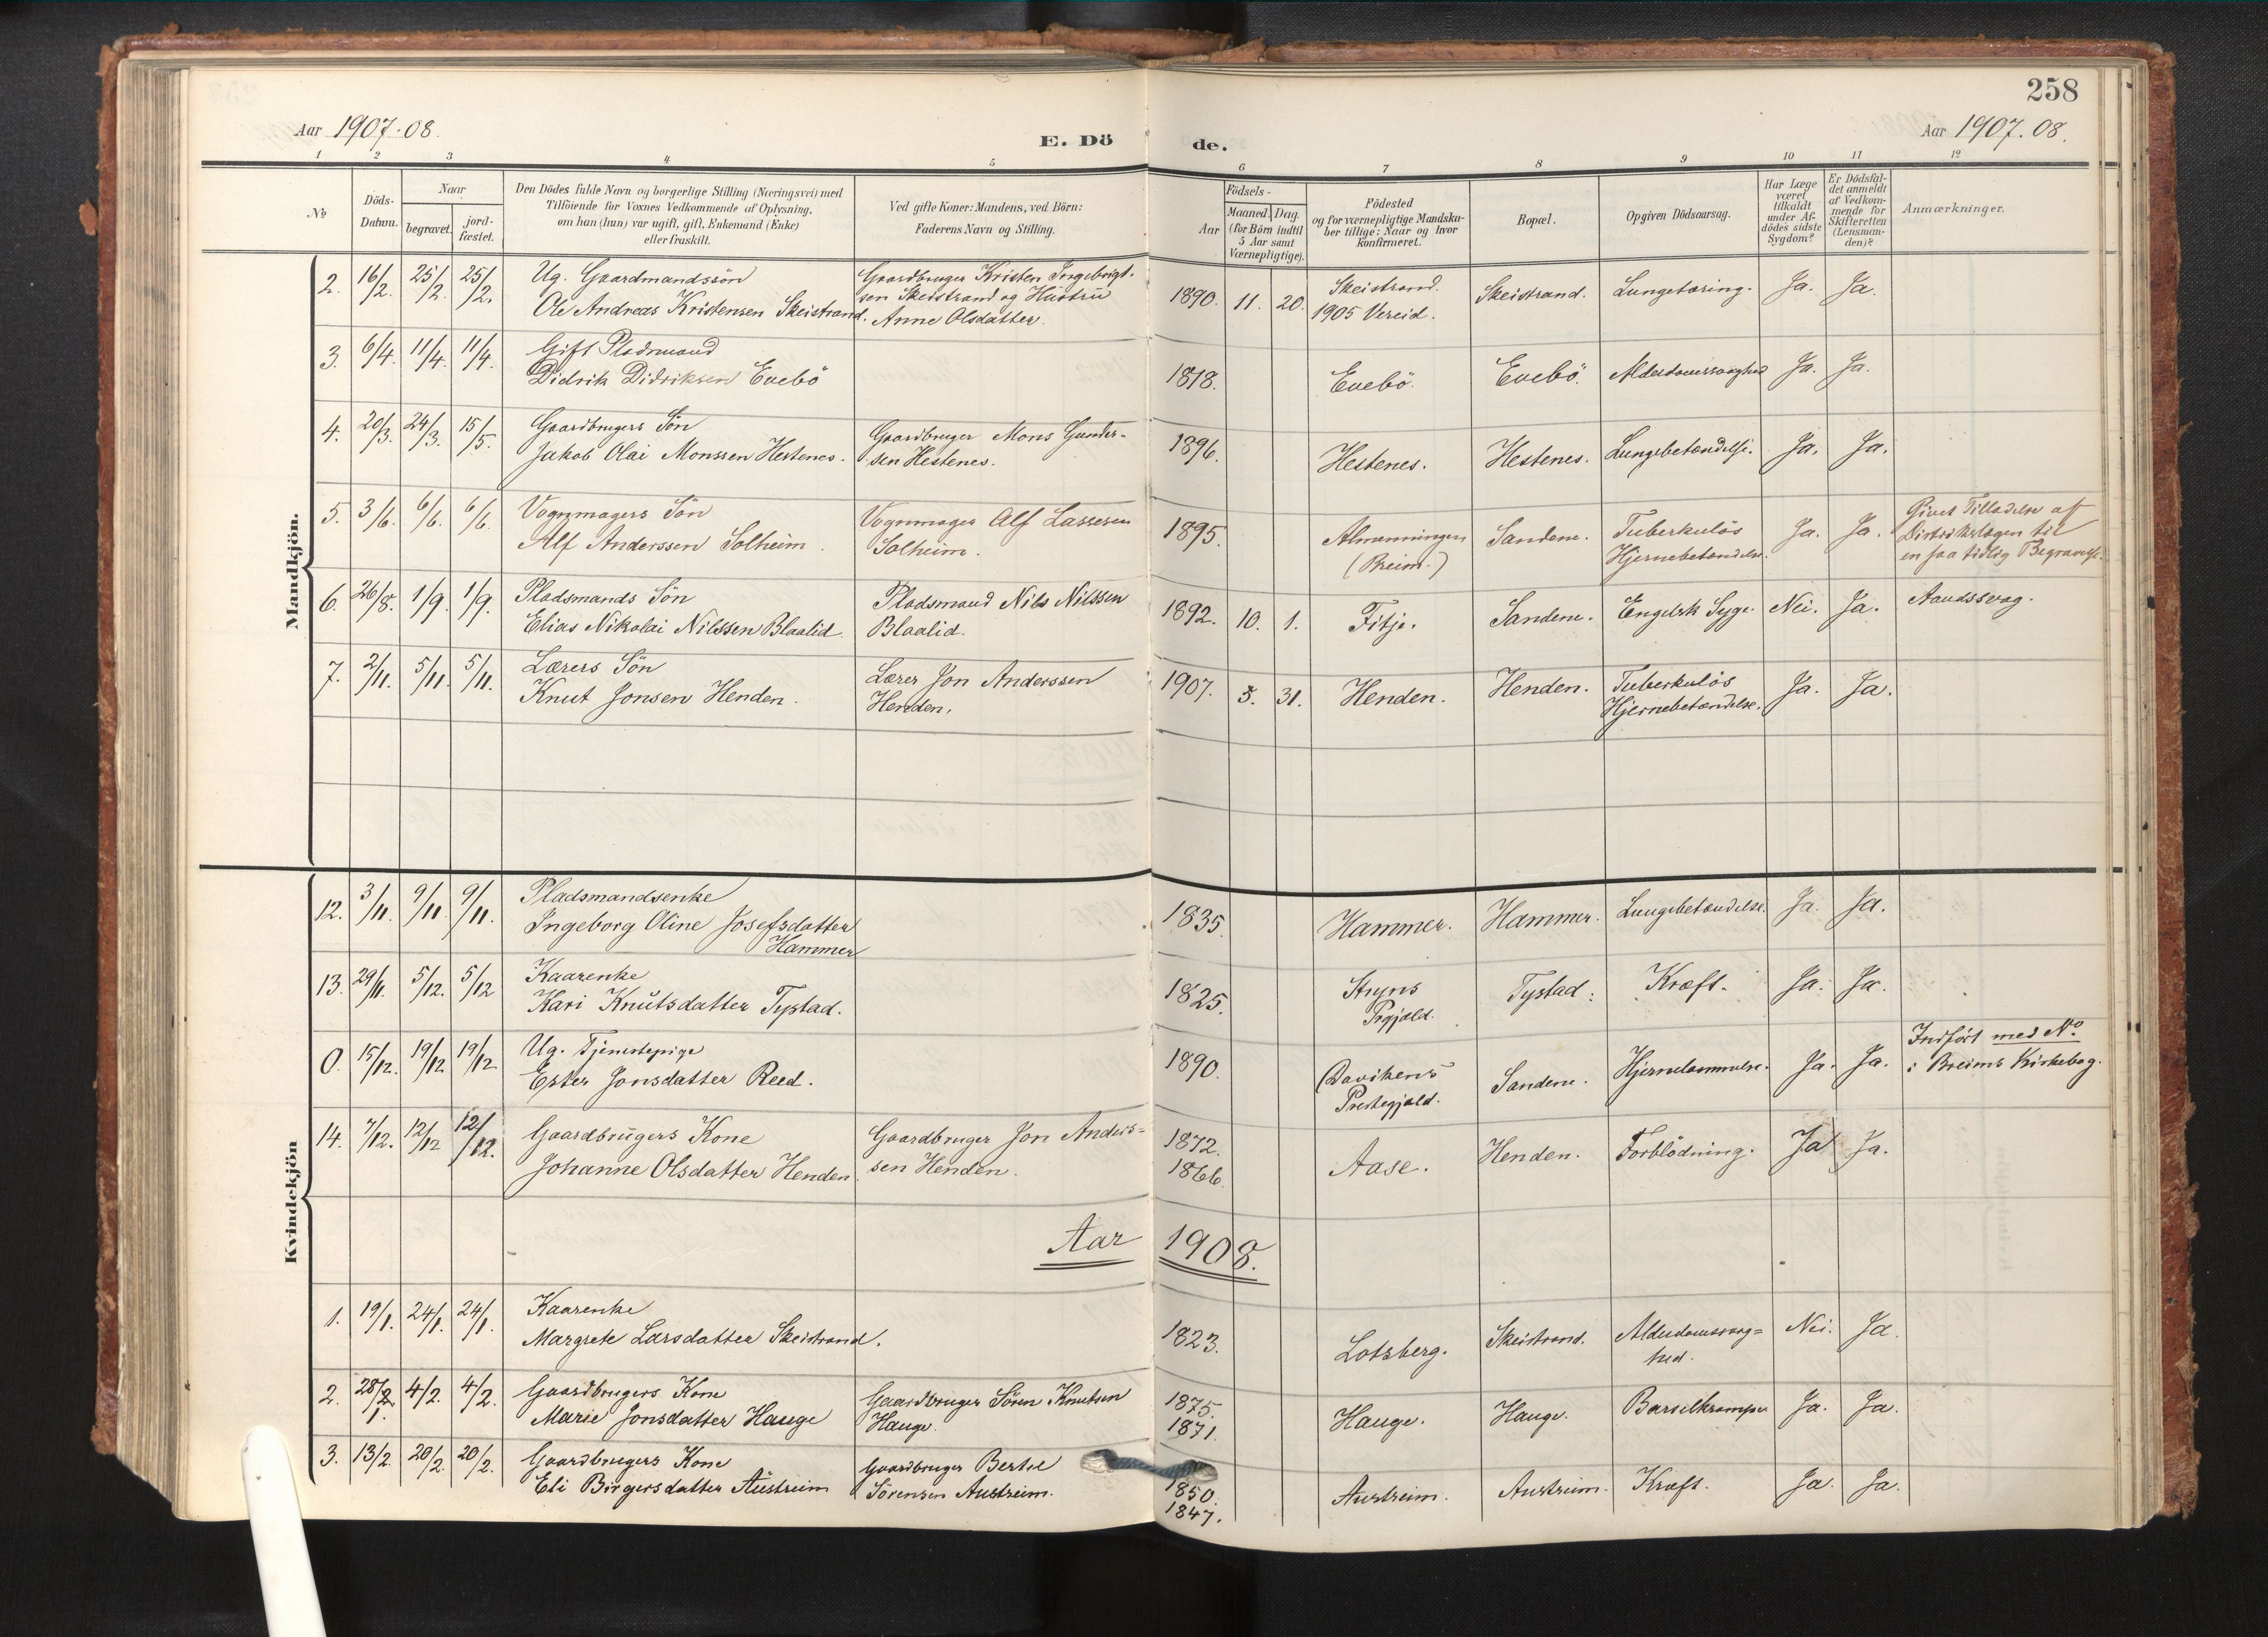 258
Aar 1907-08.
E. Dö
de.
Aar 1907.08.
1 2 3 4 5 6 7 8 9 10 11 12
No
Döds-
Datum.
Naar
begravet.
jord-
fæstet.
Den Dödes fulde Navn og borgerlige Stilling (Næringsvei) med
Tilföiende for Voxnes Vedkommende af Oplysning,
om han (hun) var ugift, gift, Enkemand (Enke)
eller fraskilt.
Ved gifte Koner: Mandens, ved Börn:
Faderens Navn og Stilling.
Födsels-
Aar
Maaned. Dag.
(for Börn indtil
5 Aar samt
Værnepligtige).
Födested
og for værnepligtige Mandska-
ber tillige: Naar og hvor
konfirmeret.
Bopæl.
Opgiven Dödsaarsag.
Har Læge
været
tilkaldt
under Af-
dödes sidste
Sygdom?
Er Dödsfal-
det anmeldt
af Vedkom-
mende for
Skifteretten
(Lensman-
den)?
Anmærkninger.
Mandkjön.
2. 16/2. 25/2. 25/2. Ug. Gaardmandssön
Ole Andreas Kristensen Skeistrand.
Gaardbruger Kristen Ingebrigt-
sen Skeistrand og Hustru
Anne Olsdatter.
1890. 11. 20. Skeistrand.
1905 Vereid.
Skeistrand. Lungetæring. Ja. Ja.
3. 6/4. 11/4. 11/4. Gift Pladsmand
Didrik Didriksen Evebö
1818. Evebö. Evebö. Alderdomssvaghed Ja. Ja.
4. 20/3. 24/3. 15/5. Gaardbrugers Sön
Jakob Olai Monssen Hestenes.
Gaardbruger Mons Gunder-
sen Hestenes.
1896. Hestenes. Hestenes. Lungebetændelse. Ja. Ja.
5. 3/6. 6/6. 6/6. Vognmagers Sön
Alf Anderssen Solheim.
Vognmager Alf Lassesen
Solheim.
1895. Almenningen
(Breim.)
Sandene. Tuberkulös
Hjernebetændelse. Ja. Ja.
Givet Tilladelse af
Distriktslægen til
en saa tidlig Begravelse.
6. 26/8. 1/9. 1/9. Pladsmands Sön
Elias Nikolai Nilssen Blaalid.
Pladsmand Nils Nilssen
Blaalid.
1892. 10. 1. Fitje. Sandene. Engelsk Syge. Nei. Ja. Aandssvag.
7. 2/11. 5/11. 5/11. Lærers Sön
Knut Jonsen Henden.
Lærer Jon Anderssen
Henden.
1907. 3. 31. Henden. Henden. Tuberkulös
Hjernebetændelse. Ja. Ja.
Kvindekjön
12. 3/11. 9/11. 9/11. Pladsmandsenke
Ingeborg Oline Josefsdatter
Hammer
1835. Hammer. Hammer. Lungebetændelse. Ja. Ja.
13. 29/11. 5/12. 5/12 Kaarenke
Kari Knutsdatter Tystad.
1825. Stryns
Prgjæld.
Tystad. Kræft. Ja. Ja.
0. 15/12. 19/12 19/12 Ug. Tjenestepige
Ester Jonsdatter Reed.
1890. Davikens
Prestegjæld.
Sandene. Hjernelammelse. Ja. Ja.
Indfört med No
i Breims Kirkebog.
14. 7/12. 12/12 12/12. Gaardbrugers Kone
Johanne Olsdatter Henden.
Gaardbruger Jon Anders-
sen Henden.
1872.
1866.
Aase. Henden. Forblödning. Ja Ja.
Aar 1908.
1. 19/1. 24/1. 24/1. Kaarenke
Margrete Larsdatter Skeistrand.
1823. Lotsberg. Skeistrand. Alderdomssvag-
hed. Nei. Ja.
2. 28/1. 4/2. 4/2. Gaardbrugers Kone
Marie Jonsdatter Hauge
Gaardbruger Sören Knutsen
Hauge.
1875.
1871.
Hauge. Hauge. Barselkrampe Ja. Ja.
3. 13/2. 20/2. 20/2. Gaardbrugers Kone
Eli Birgersdatter Austreim
Gaardbruger Bertel
Sörensen Austreim.
1850.
1847.
Austreim. Austreim. Kræft. Ja. Ja.